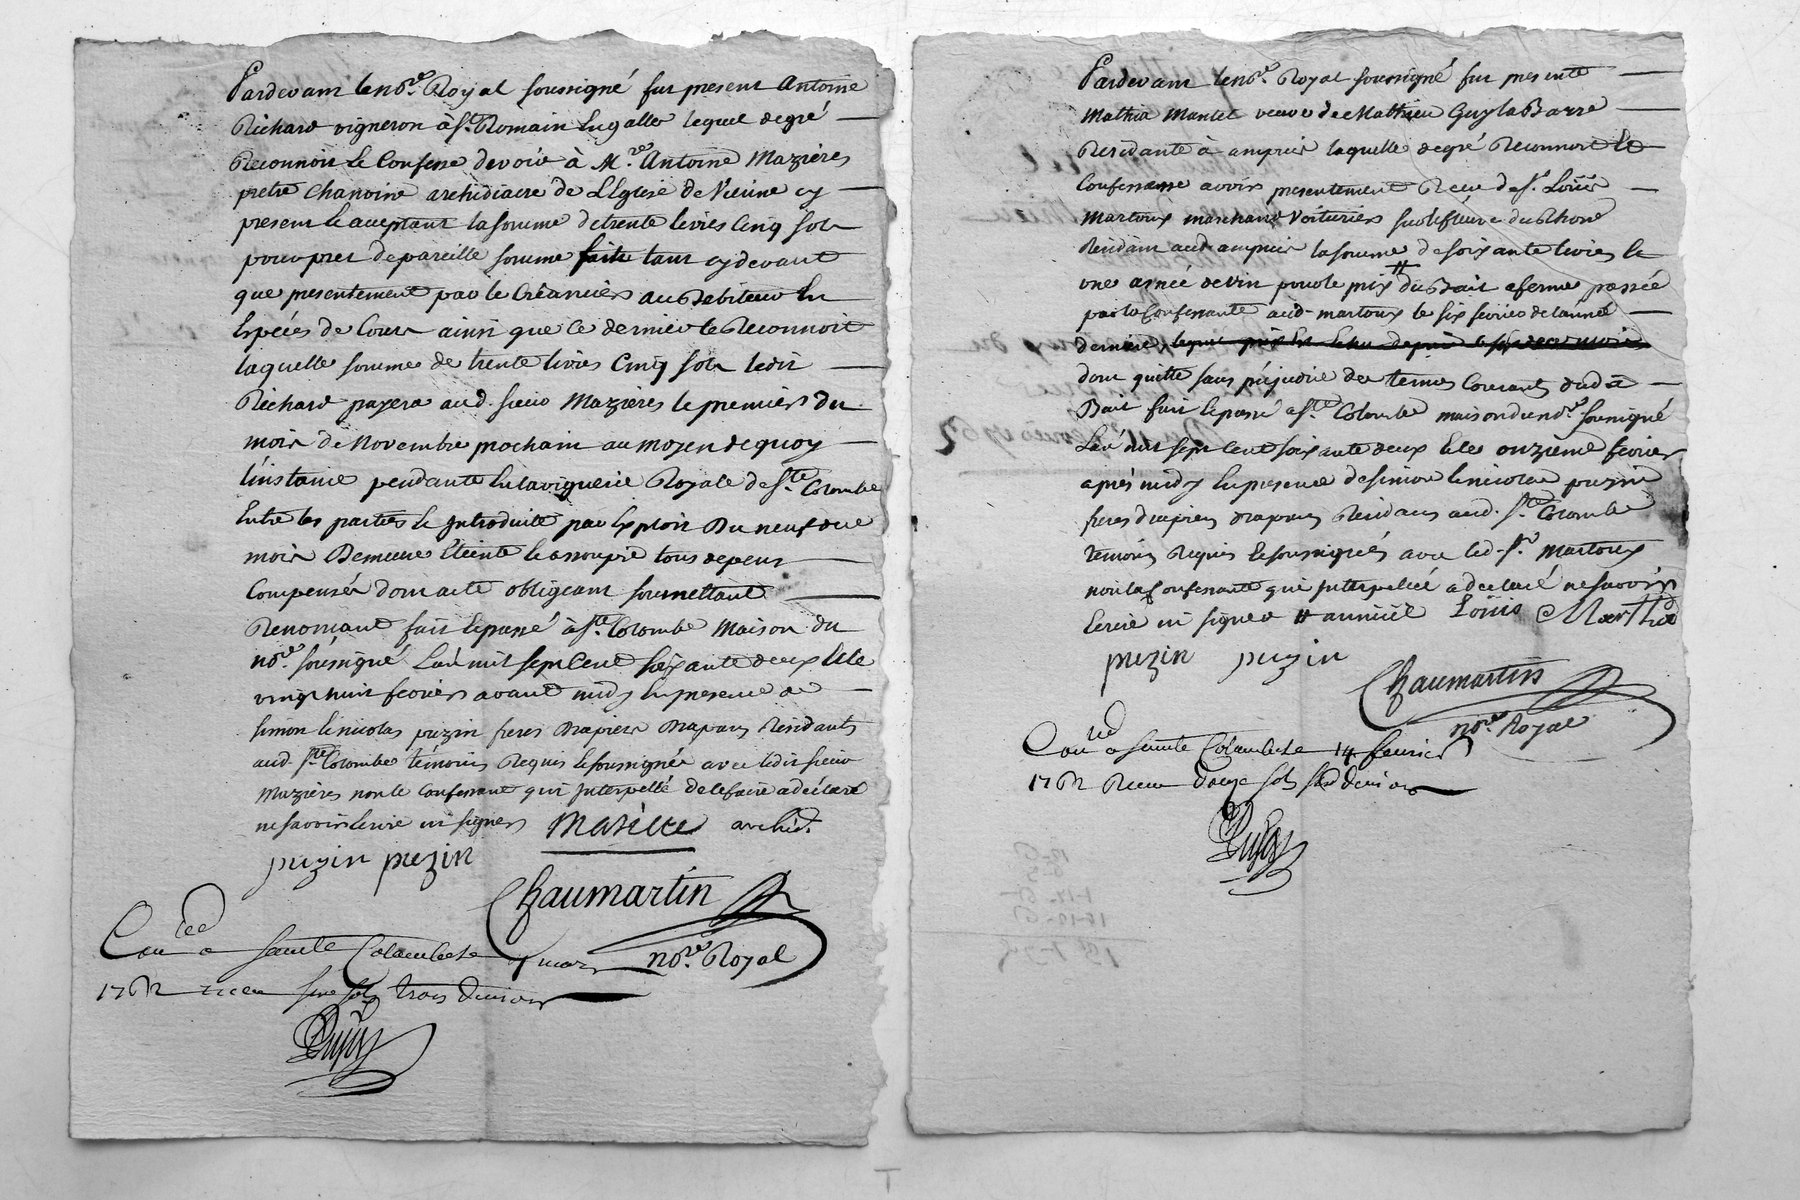 Pardevant le no.re Royal soussigné fut present Antoine
Richard vigneron à St. Romain En galle lequel de gré
Reconnoit Et Confesse devoir à M.re Antoine Mazières
pretre Chanoine archidiacre de L'Eglise de Vienne cy
present Et aceptant la somme de trente livres Cinq sols
pour pret de pareille somme faitte tant cy devant
que presentement par le Créancier au Debiteur En
Espéces de Cours ainsi que ce dernier le Reconnoit
laquelle somme de trente livres Cinq sols ledit
Richard payera aud. sieur Mazières le premier du
mois de Novembre prochain au moyen de quoy
l'instance pendante En la viguerie Royale de Ste. Colombe
Entre les parties Et Introduitte par Exploit Du neuf du
mois Demeure Eteinte Et assoupie tous depens
Compensés dont acte obligeant soumettant
Renonçant fait Et passé à Ste. Colombe Maison du
no.re soussigné L'an mil sept Cent soixante deux Et le
vingt huit fevrier avant midy En presence de
simon Et nicolas puzin freres Drapiers Drapans Residants
aud. Ste. Colombe témoins Requis Et soussignés avec ledit sieur
Mazières non le Confessant qui Interpellé de le faire a déclaré
ne savoir Ecrire ni signer Masière archid.
puzin puzin
Chaumartin
no.re Royal
Con.lée a Sainte Colombe mars
1762 recu sols trois deniers
Pardevant le no.re Royal soussigné fut presente
Mathia Mantel veuve de Mathieu Guy la Barre
Residante à ampuis laquelle de gré Reconnoit Et
Confesse avoir presentement Recu de Sr. Loüis
Martoux marchand Voiturier sur le fleuve du Rhone
Residant aud. ampuis la somme de soixante livres Et
une asnée de vin pour le prix # du Bail a ferme passée
par la Confessante aud. martoux le six fevrier de l'année
derniere
dont quitte sans préjudice des termes Courants dud.
Bail fait Et passé a Ste. Colombe maison du no.re soussigné
L'an mil sept Cent soixante deux Et le onzieme fevrier
après midy En presence de simon Et nicolas puzin
freres drapiers drapans Residans aud. Ste. Colombe
temoins Requis Et soussignés avec led. Sr. Martoux
non la Confessante qui Interpellée a declaré ne savoir
Ecrire ni signer # annüel Loüis
puzin puzin
Chaumartin
no.re Royal
Con.lée a Sainte Colombe 14 fevrier
1762 Recu douze sols six deniers